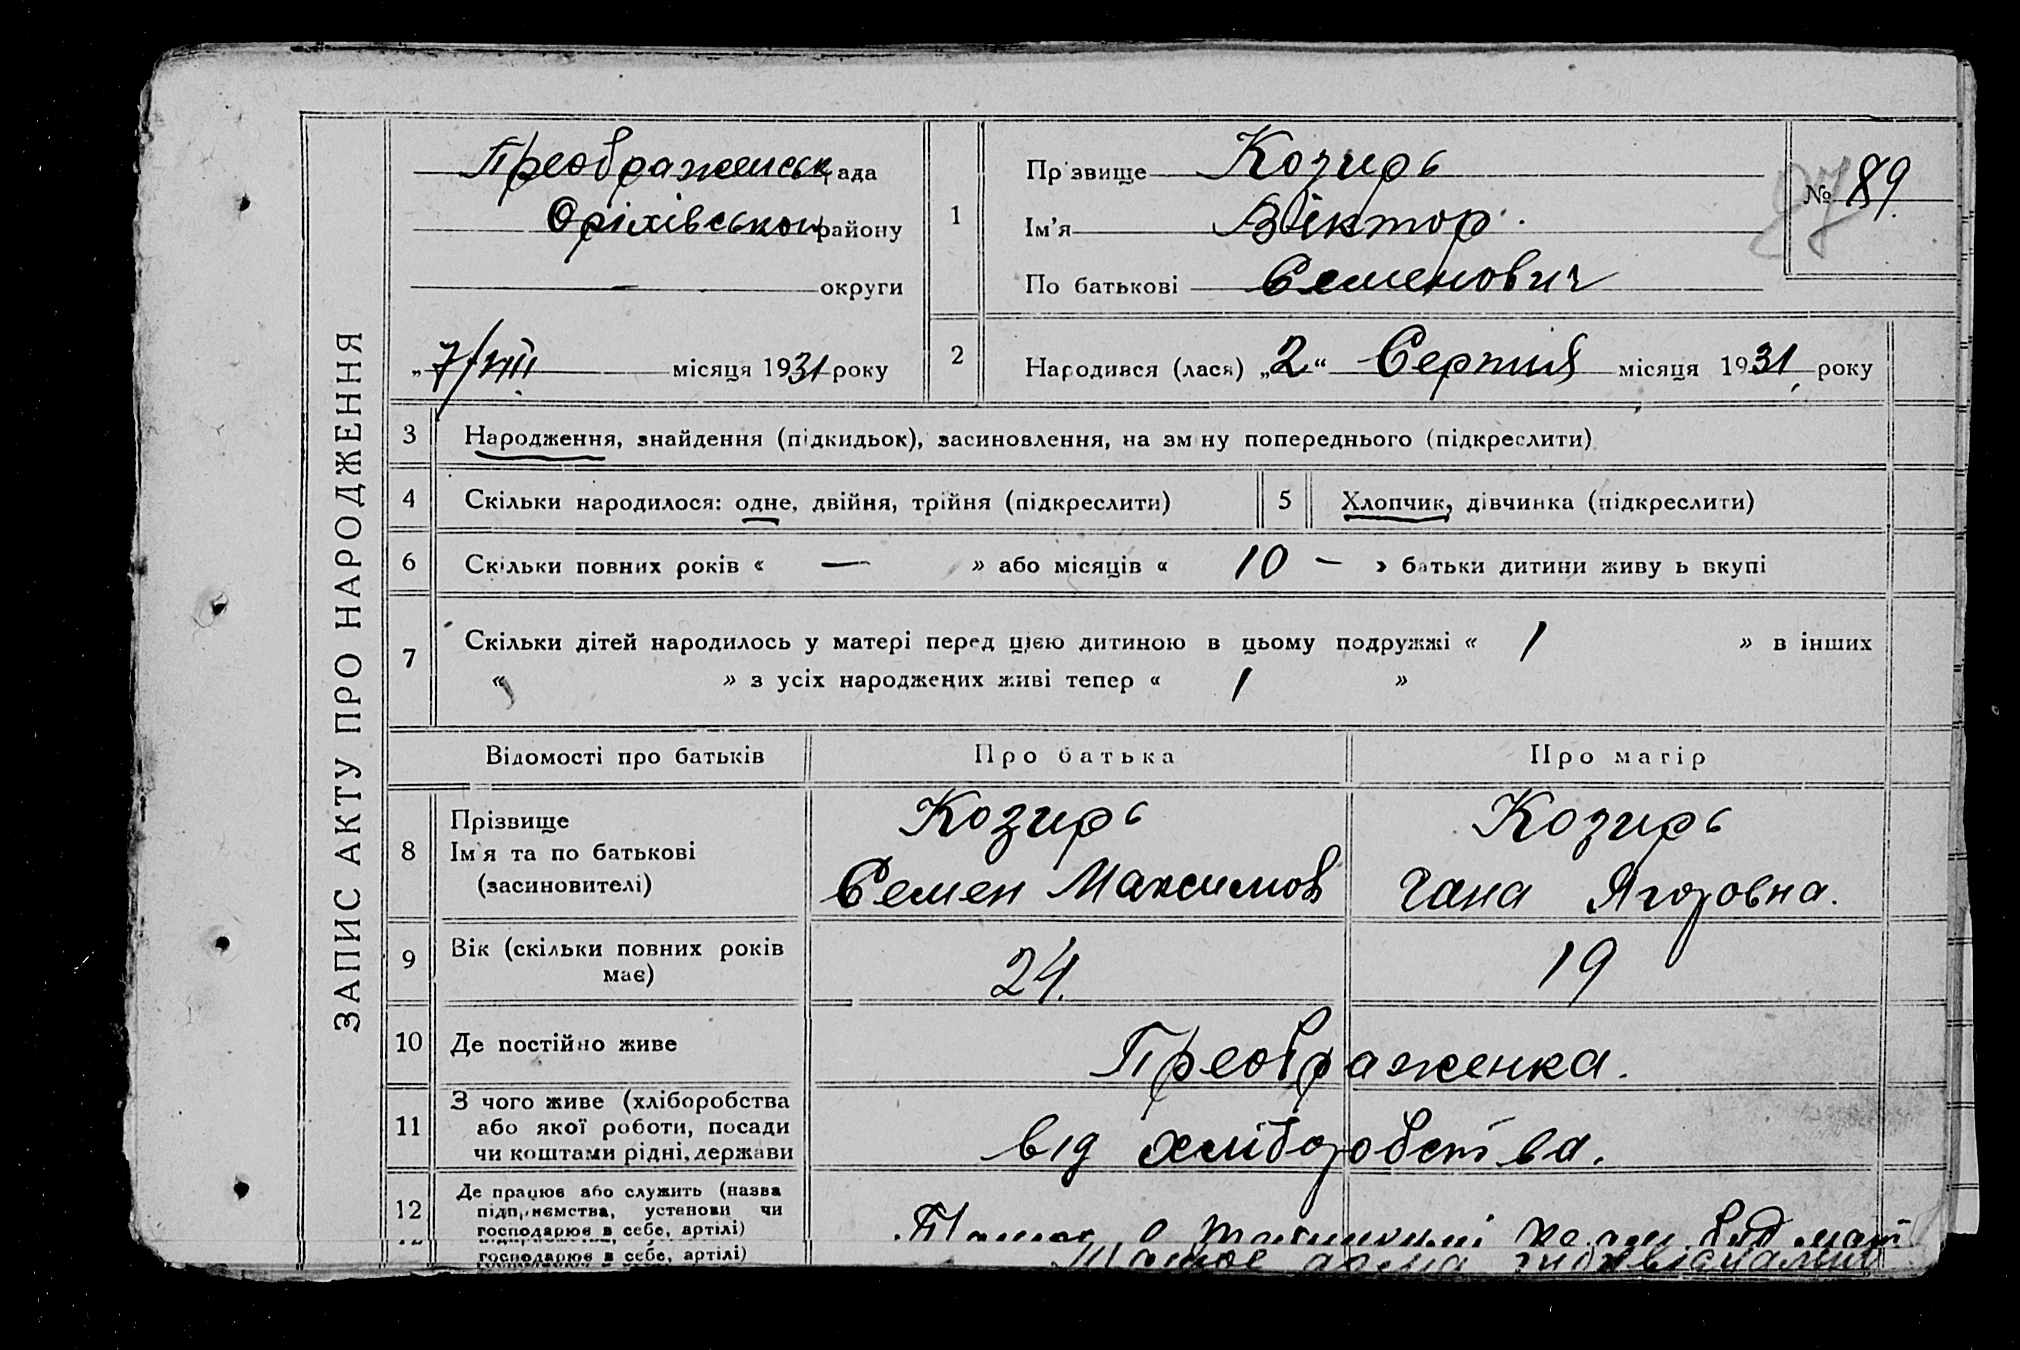 ЗАПИС АКТУ ПРО НАРОДЖЕННЯ
Преображенськ рада
Оріхівської району
— округи
„7/VIII місяця 1931 року
1
Прізвище Козирь
Ім'я Віктор
По батькові Семенович
№ 89
97
2
Народився (лася) „2“ Серпня місяця 1931 року
3 Народження, знайдення (підкидьок), засиновлення, на зміну попереднього (підкреслити)
4 Скільки народилося: одне, двійня, трійня (підкреслити)
5 Хлопчик, дівчинка (підкреслити)
6 Скільки повних років « — » або місяців « 10 — » батьки дитини живуть вкупі
7 Скільки дітей народилось у матері перед цією дитиною в цьому подружжі « 1 » в інших
« » з усіх народжених живі тепер « 1 »
Відомості про батьків Про батька Про матір
8 Прізвище
Ім'я та по батькові
(засиновителі)
Козирь
Семен Максимов
Козирь
Гана Ягоровна.
9 Вік (скільки повних років має)
24.
19
10 Де постійно живе
Преображенка.
11 З чого живе (хліборобства
або якої роботи, посади
чи коштами рідні, держави
від хліборобства.
12 Де працює або служить (назва
підприємства, установи чи
господарює в себе, артілі)
господарює в себе, артілі)